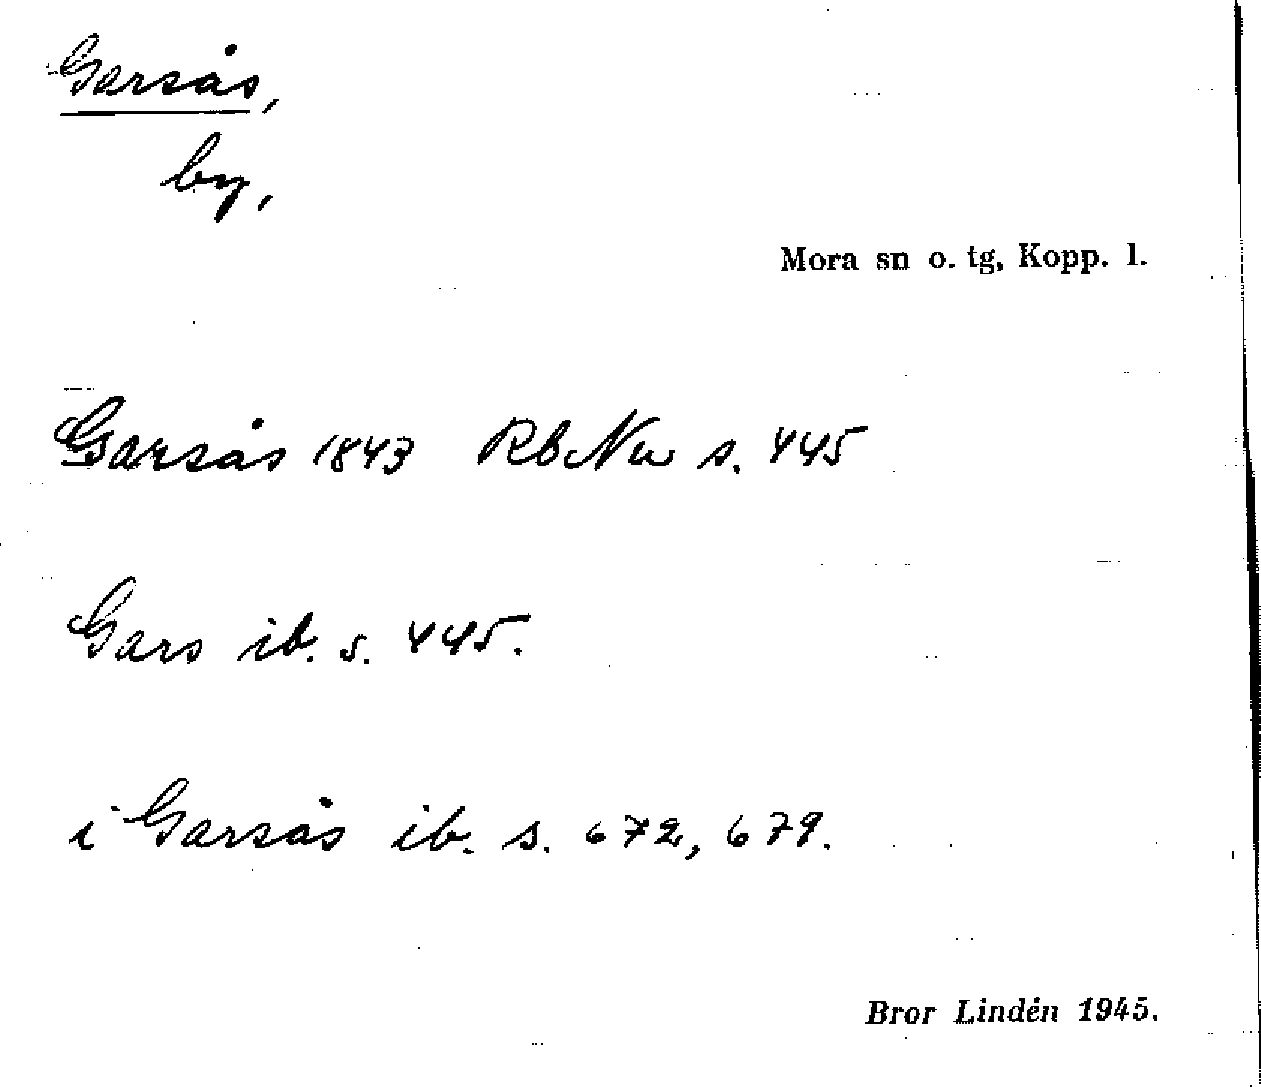 Gersås,
by,
Mora sn o. tg, Kopp. l.
Garsås 1843 RbNu s. 445
Gars ib. s. 445.
i Garsås ib. s. 672, 679.
Bror Lindén 1945.